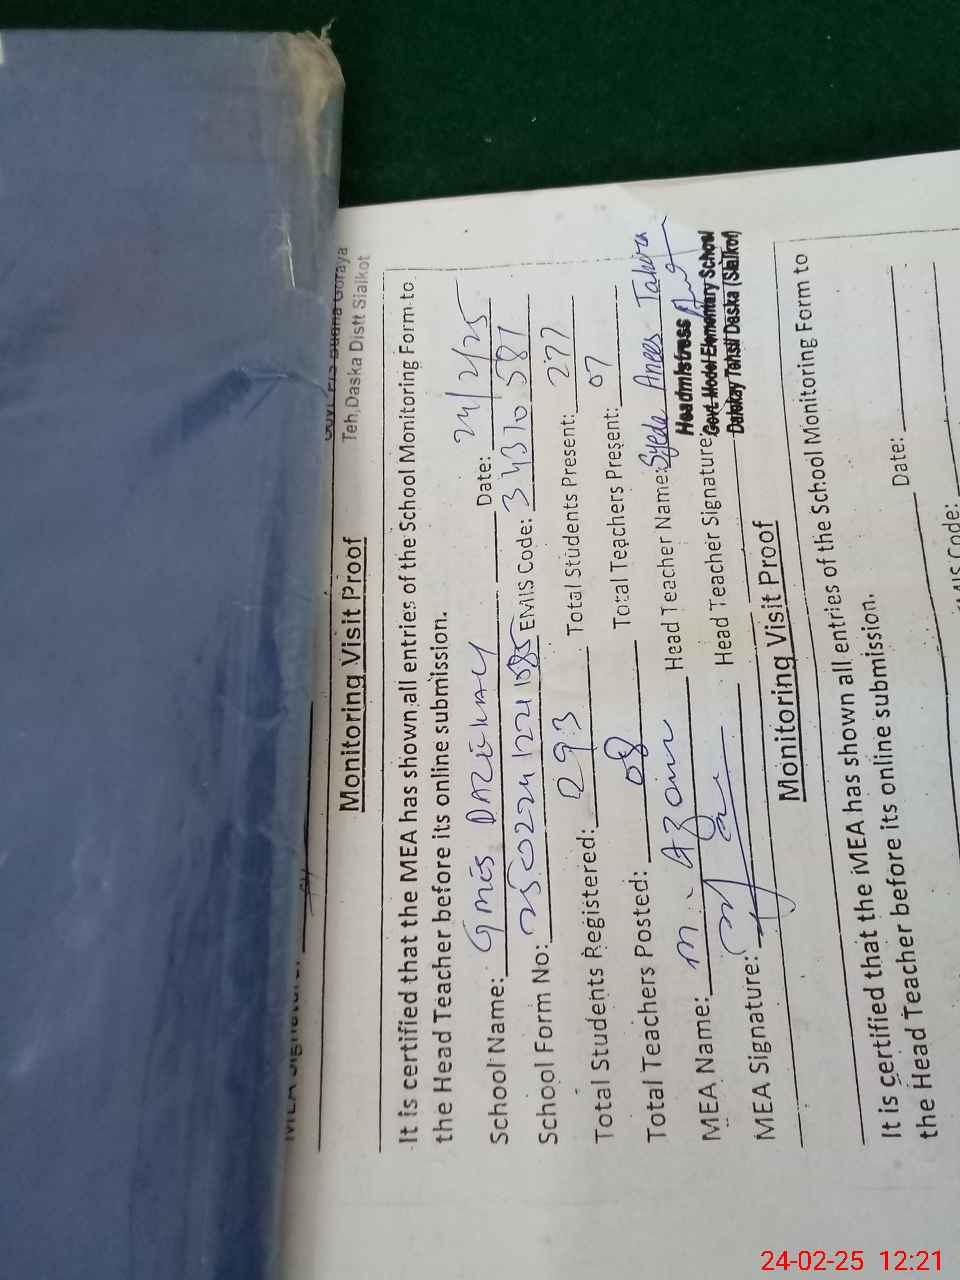 Teh,Daska Distt Sialkot
Monitoring Visit Proof
It is certified that the MEA has shown all entries of the School Monitoring Form to
the Head Teacher before its online submission.
School Name: GMES Date: 24/2/25
School Form No: EMIS Code: 34310581
Total Students Registered: 293 Total Students Present: 277
Total Teachers Posted: 08 Total Teachers Present: 07
MEA Name: M. Azam Head Teacher Name: Syeda Anees Tahira
Headmistress
MEA Signature: Head Teacher Signature:
Govt. Model Elementary School
Tehsil Daska (Sialkot)
Monitoring Visit Proof
It is certified that the MEA has shown all entries of the School Monitoring Form to
the Head Teacher before its online submission.
Date:
Code:
24-02-25 12:21